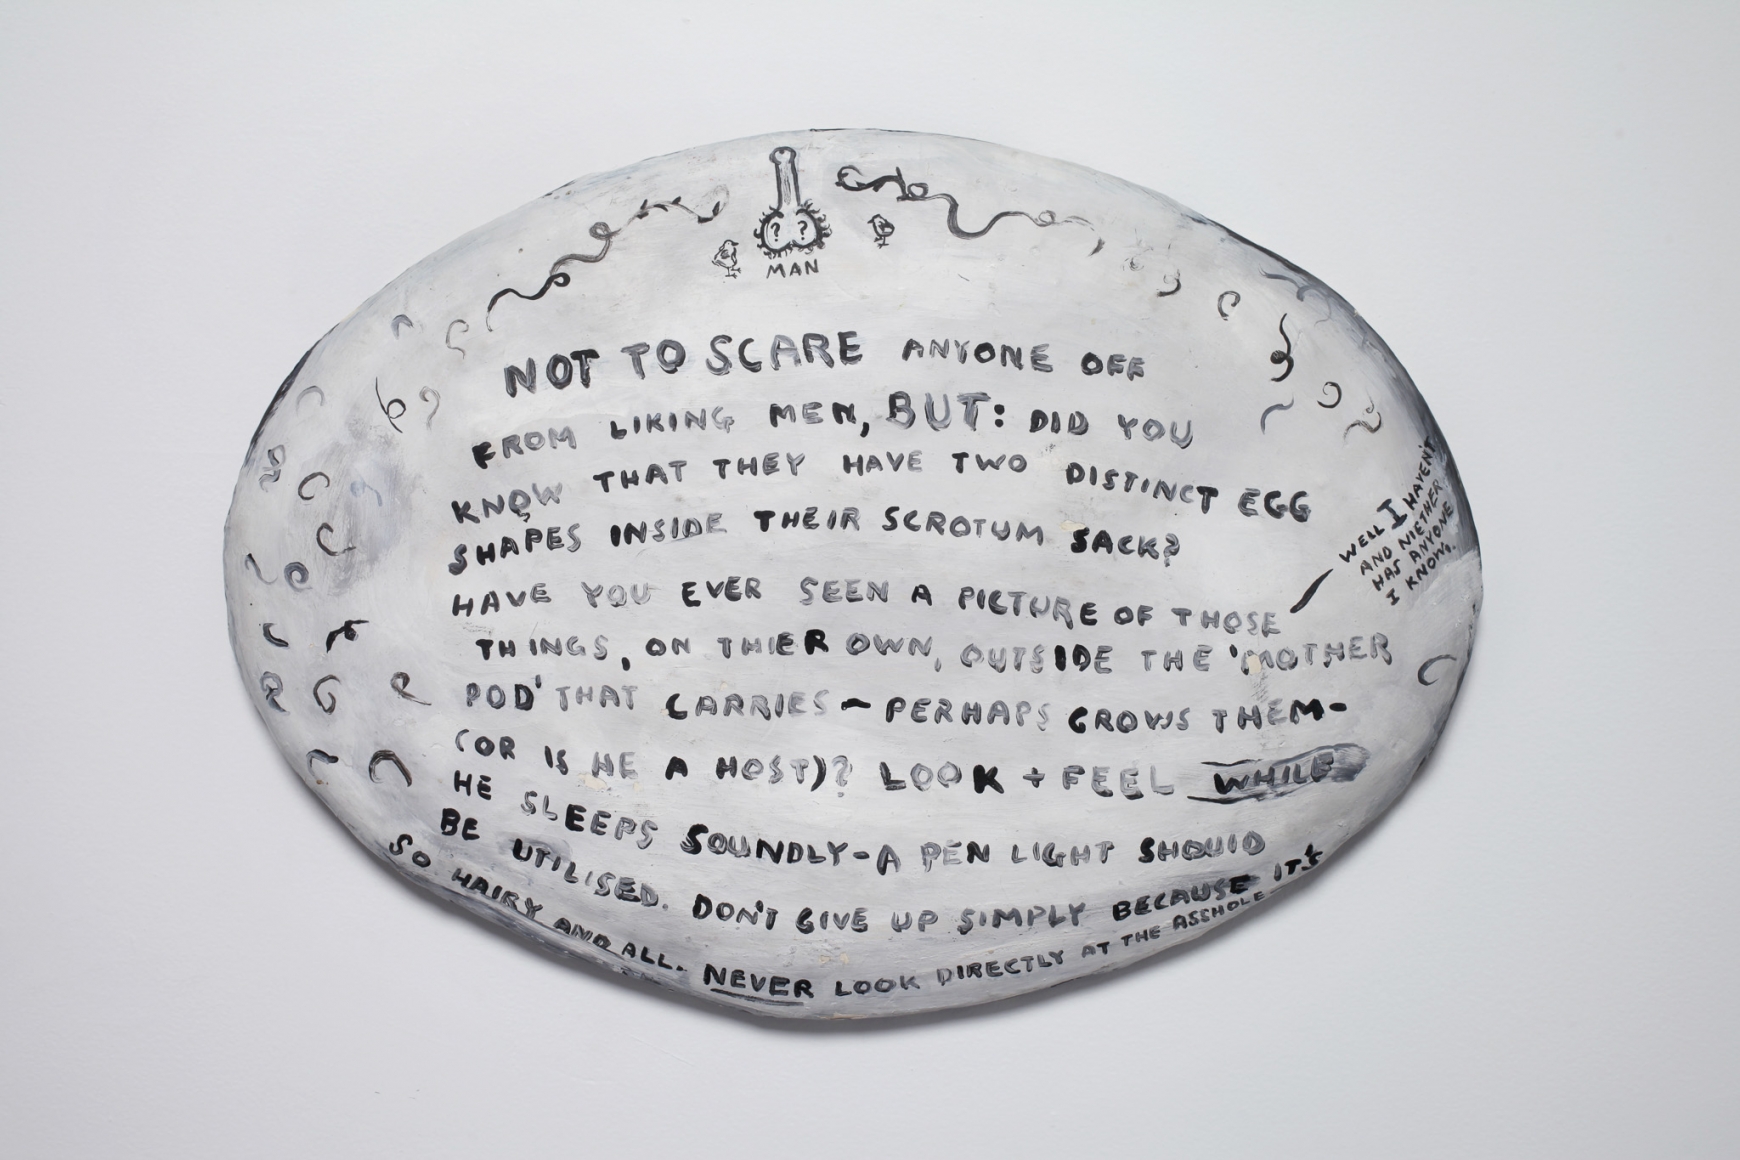 MAN
? ?
NOT TO SCARE ANYONE OFF
FROM LIKING MEN, BUT: DID YOU
KNOW THAT THEY HAVE TWO DISTINCT EGG
SHAPES INSIDE THEIR SCROTUM SACK?
HAVE YOU EVER SEEN A PICTURE OF THOSE
THINGS, ON THIER OWN, OUTSIDE THE 'MOTHER
POD' THAT CARRIES - PERHAPS GROWS THEM-
(OR IS HE A HOST)? LOOK + FEEL WHILE
HE SLEEPS SOUNDLY-A PEN LIGHT SHOULD
BE UTILISED. DON'T GIVE UP SIMPLY BECAUSE IT'S
SO HAIRY AND ALL. NEVER LOOK DIRECTLY AT THE ASSHOLE
WELL I HAVEN'T
AND NIETHER
HAS ANYONE
I KNOW.